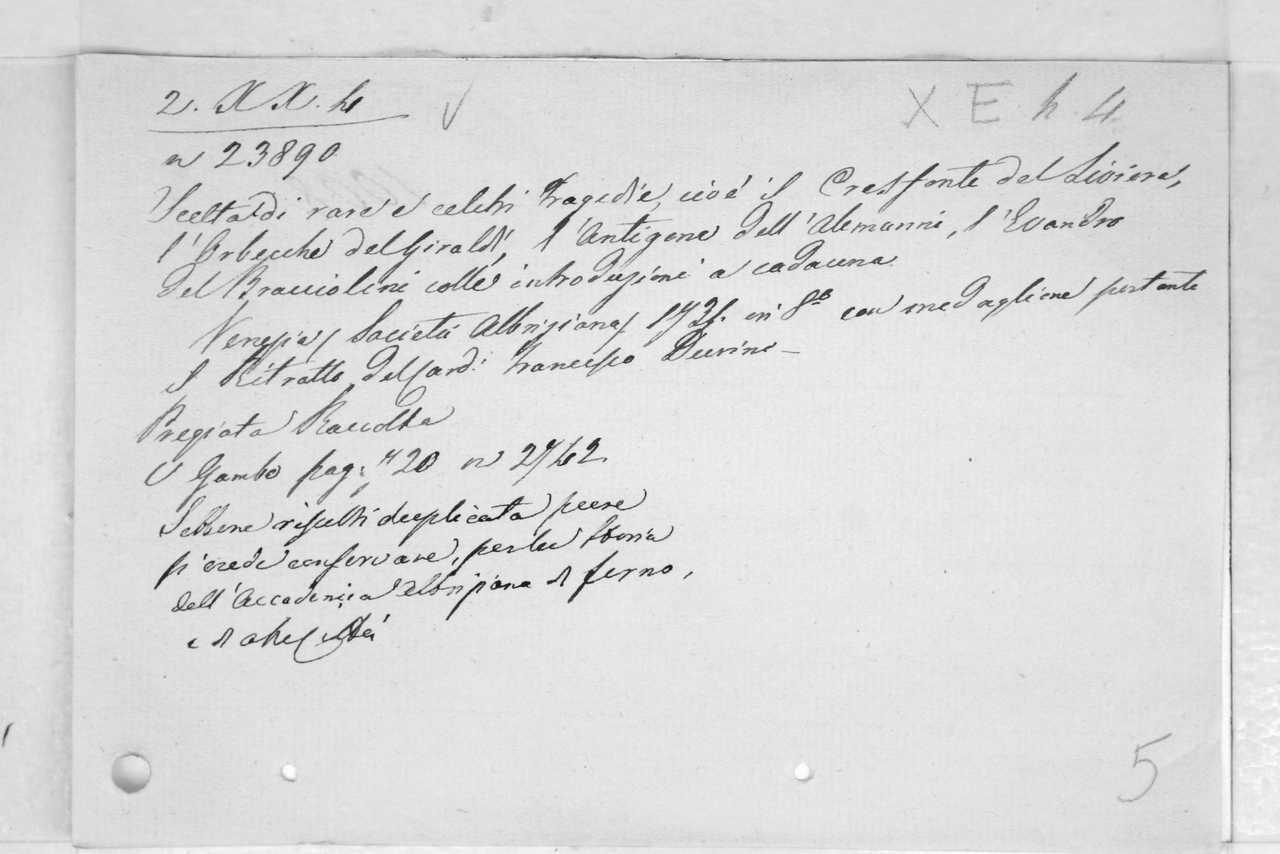 2. X X. h
X E h 4
n 23890
Scelta di rare e celebri Tragedie, cioè il Cresfonte del Liviera,
l'Orbecche del Giraldi, l'Antigone dell'Alemanni, l'Evandro
del Bracciolini colle introduzioni a cadauna
Venezia, Società Albriziana, 1731. in 8º con medaglione portante
il Ritratto del Card. Francesco Durini –
Pregiata Raccolta
V Gamba pag. 720 n 2762
Sebbene risulti duplicata pure
si crede conservare, per la Storia
dell'Accademia Albriziana di fermo,
e di altre città
5